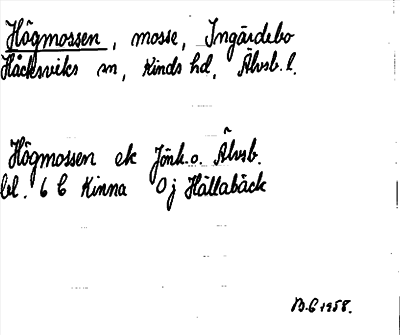 Högmossen, mosse, Ingärdebo
Håcksviks sn, Kinds hd, Älvsb. l.
Högmossen ek Jönk. o. Älvsb.
bl. 6 C Kinna 0j Hällabäck
B.G 1958.